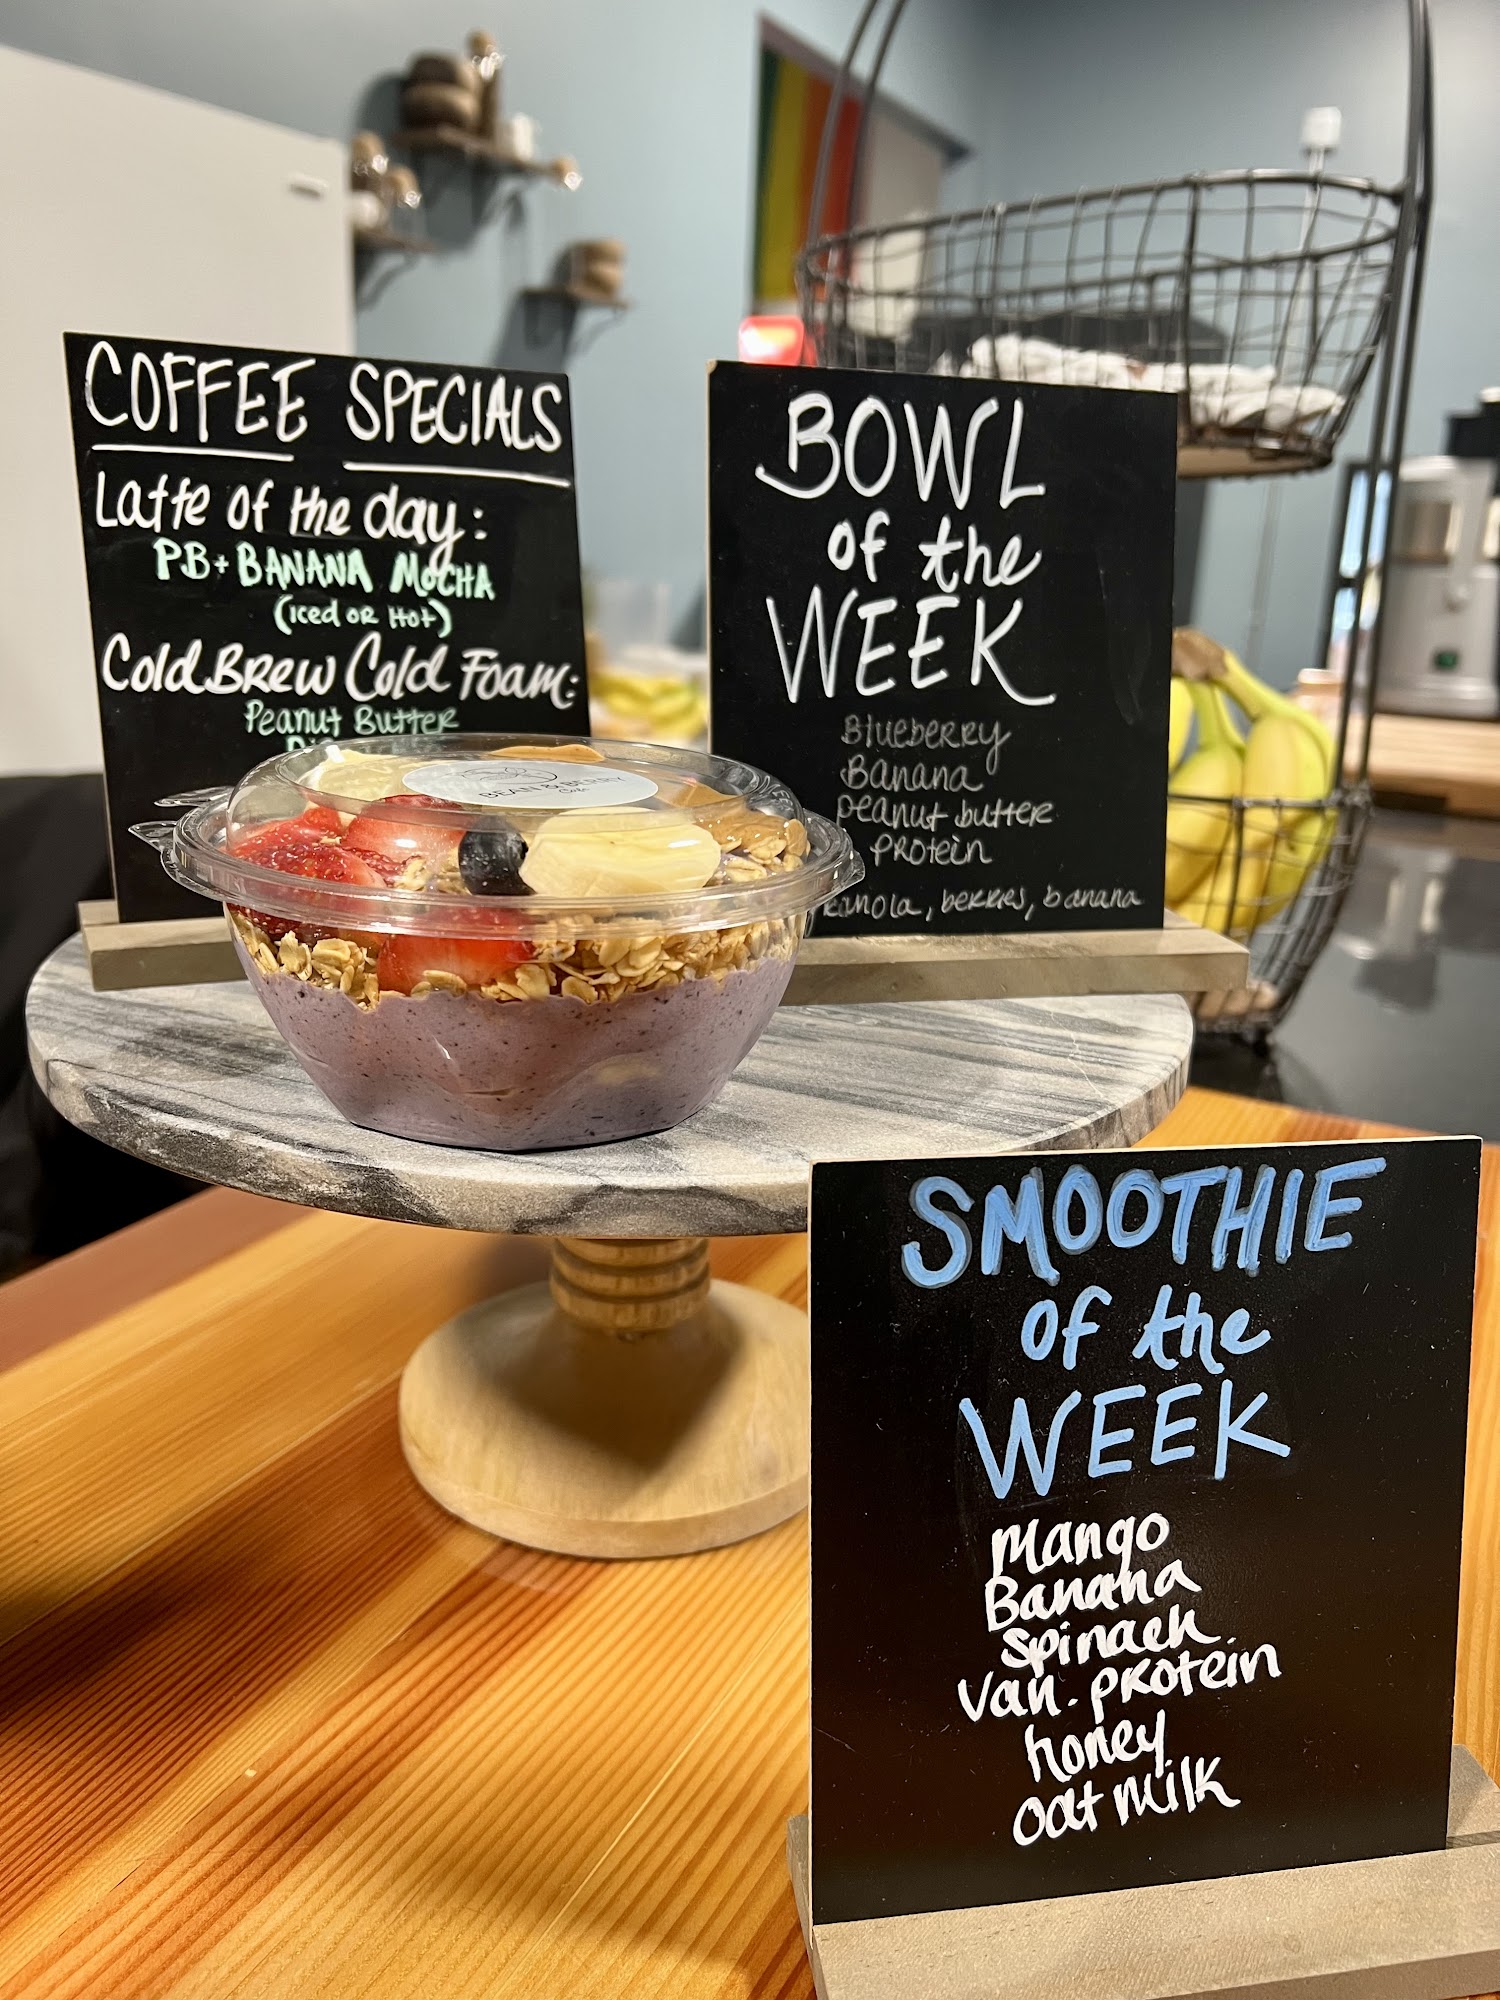 COFFEE SPECIALS
Latte of the day:
PB+BANANA MOCHA
(iced or Hot)
Cold Brew Cold Foam:
Peanut Butter
BOWL
of the
WEEK
Blueberry
Banana
peanut butter
protein
ranola, berries, banana
BEAN & BERRY
Cafe
SMOOTHIE
of the
WEEK
Mango
Banana
spinach
Van. protein
honey
oat milk